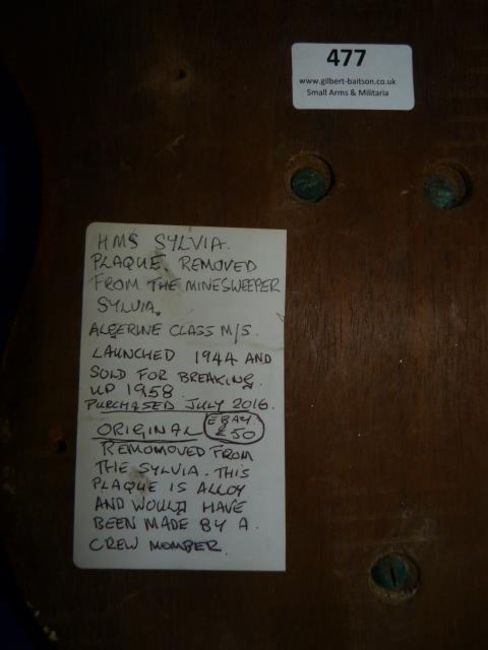 477
www.gilbert-baitson.co.uk
Small Arms & Militaria
HMS SYLVIA.
PLAQUE. REMOVED
FROM THE MINESWEEPER
SYLVIA.
ALGERINE CLASS M/S.
LAUNCHED 1944 AND
SOLD FOR BREAKING.
UP 1958.
PURCHASED JULY 2016.
ORIGINAL EBAY. £50
REMOMOVED FROM
THE SYLVIA. THIS
PLAQUE IS ALLOY
AND WOULD HAVE
BEEN MADE BY A.
CREW MOMBER.